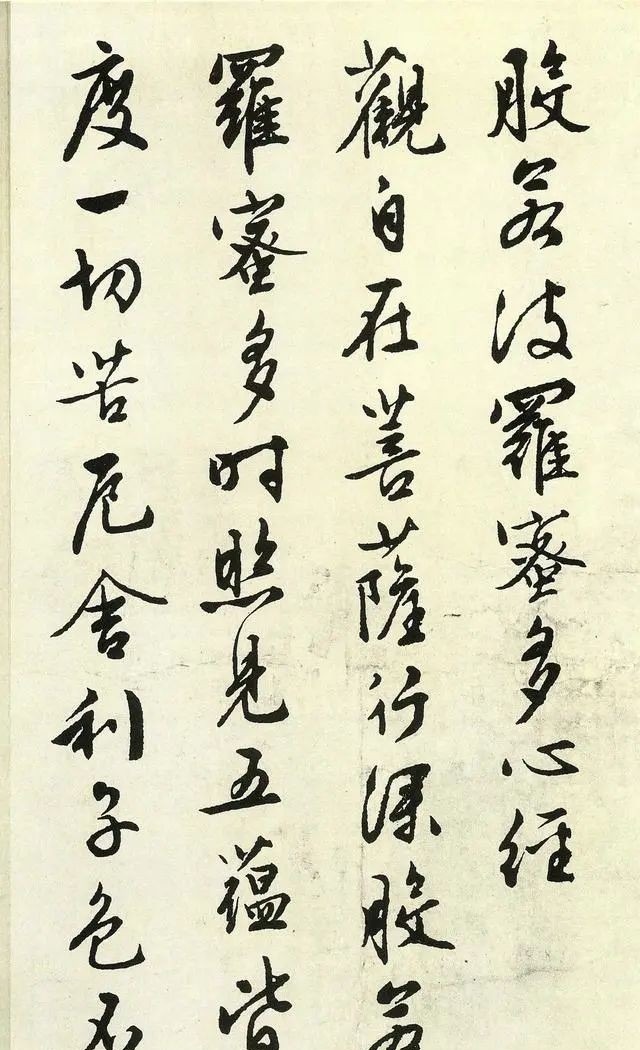 般若波羅蜜多心經
觀自在菩薩行深般若
羅蜜多時照見五蘊皆
度一切苦厄舍利子色不